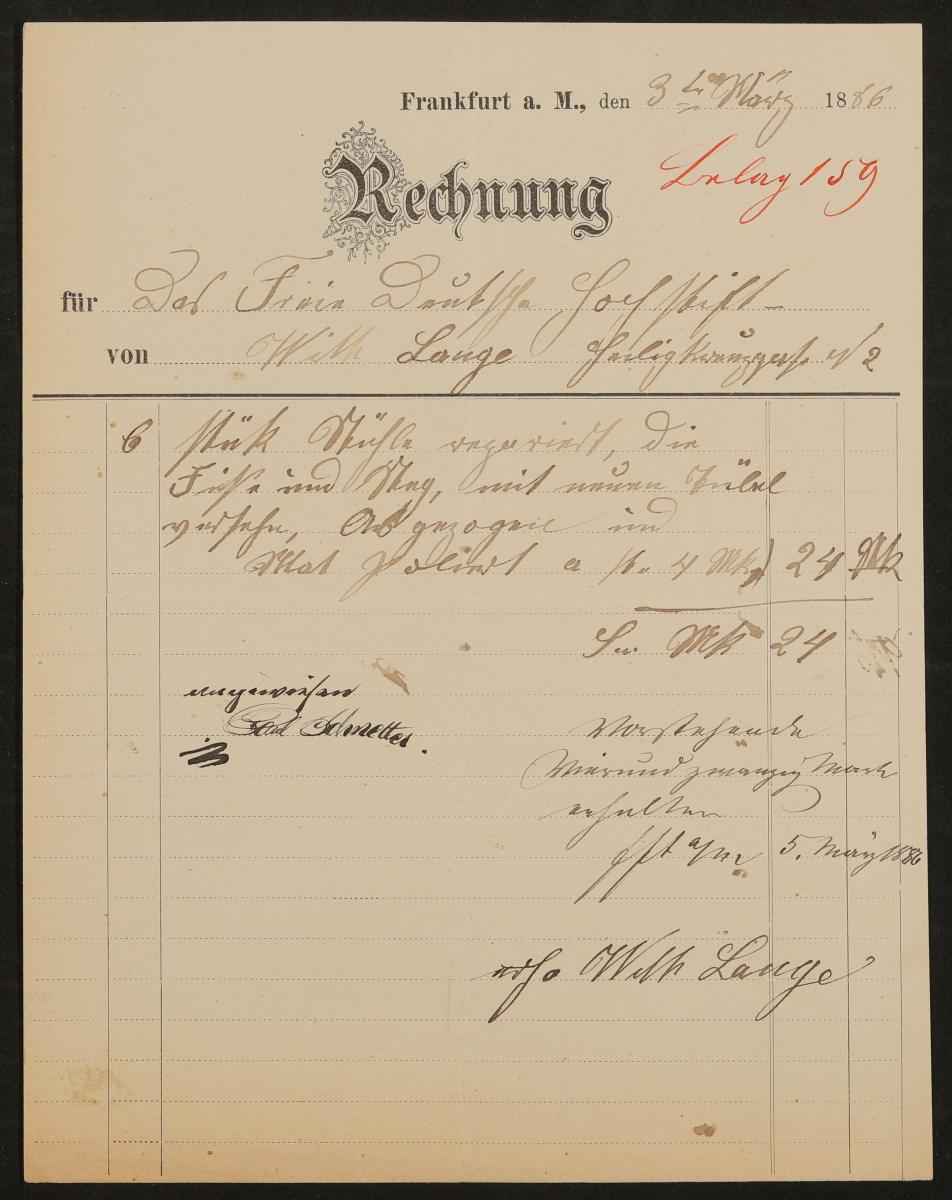 Frankfurt a. M., den 3ten März 1886
Rechnung
Beleg 159
für Das Freie Deutsche Hochstift
von Wilh Lange Heiligkreuzgaß. N 2
6 stük Stühle repariert, die
Füße und Steg, mit neuen Dübel
versehn, Abgezogen und
Mat poliert a st. 4 Mk 24 Mk
Sa. Mk 24
angewiesen
Vorstehende
Vierund zwanzig Mark
erhalten
Fft a/M 5. März 1886
Wilh Lange